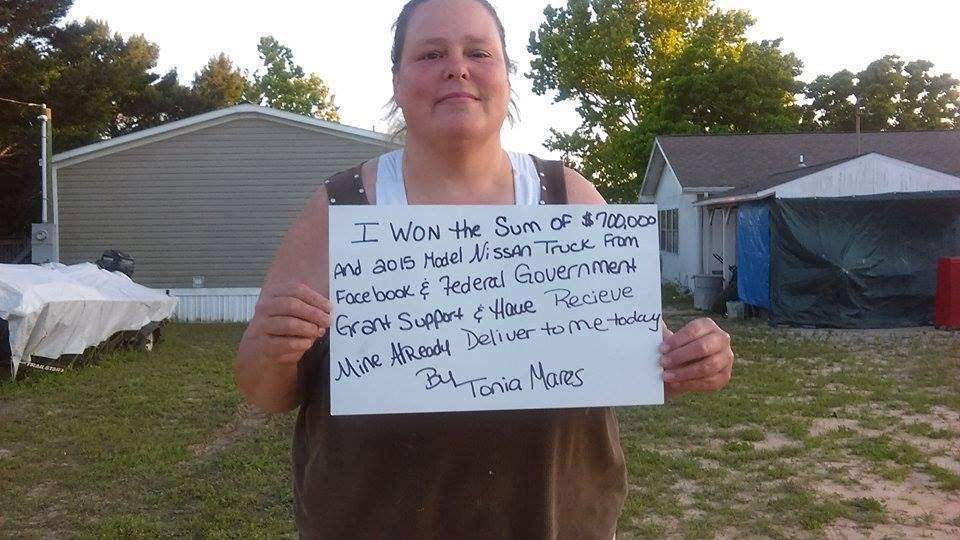 I WON the SUM OF $700,000
And 2015 Model NISSAN Truck From
Facebook & Federal Government
Grant Support & Have Recieve
Mine Already Deliver to me today
By Tonia Mares
TRAILSTAR